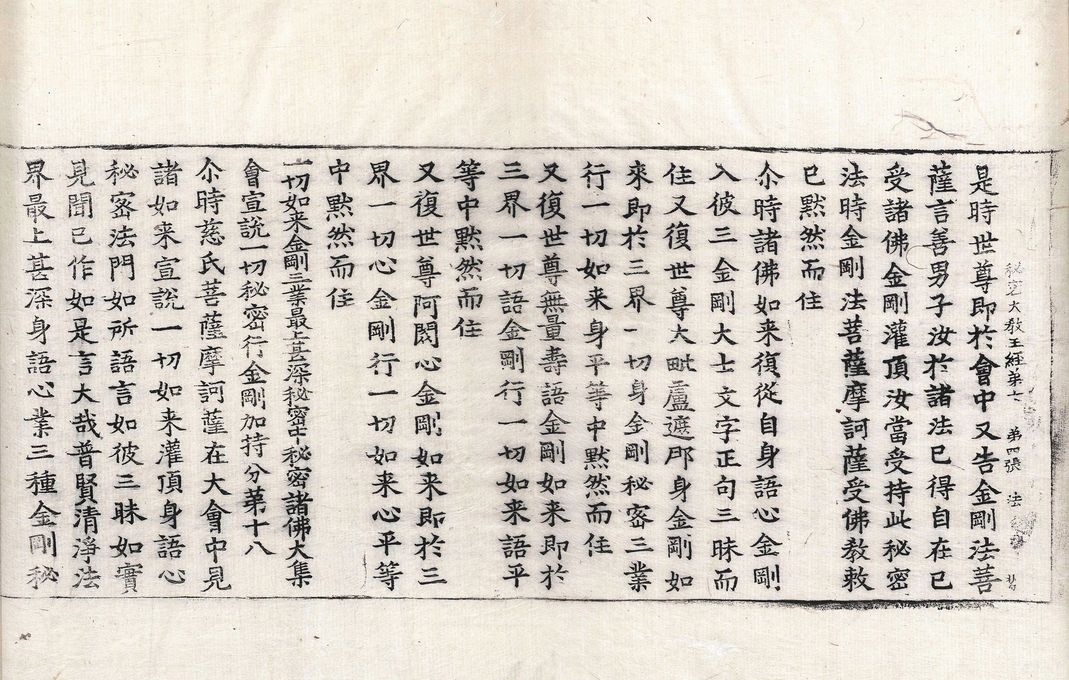 秘密大教王經第七 第四張 法
是時世尊即於會中又告金剛法菩
薩言善男子汝於諸法已得自在已
受諸佛金剛灌頂汝當受持此秘密
法時金剛法菩薩摩訶薩受佛教敕
已默然而住
尒時諸佛如来復從自身語心金剛
入彼三金剛大士文字正句三昧而
住又復世尊大毗盧遮那身金剛如
來即於三界一切身金剛秘密三業
行一切如来身平等中默然而住
又復世尊無量壽語金剛如来即於
三界一切語金剛行一切如来語平
等中默然而住
又復世尊阿閦心金剛如来即於三
界一切心金剛行一切如来心平等
中默然而住
一切如来金剛三業最上甚深秘密中秘密諸佛大集
會宣說一切秘密行金剛加持分第十八
尒時慈氏菩薩摩訶薩在大會中見
諸如来宣說一切如来灌頂身語心
秘密法門如所語言如彼三昧如實
見聞已作如是言大哉普賢清淨法
界最上甚深身語心業三種金剛秘